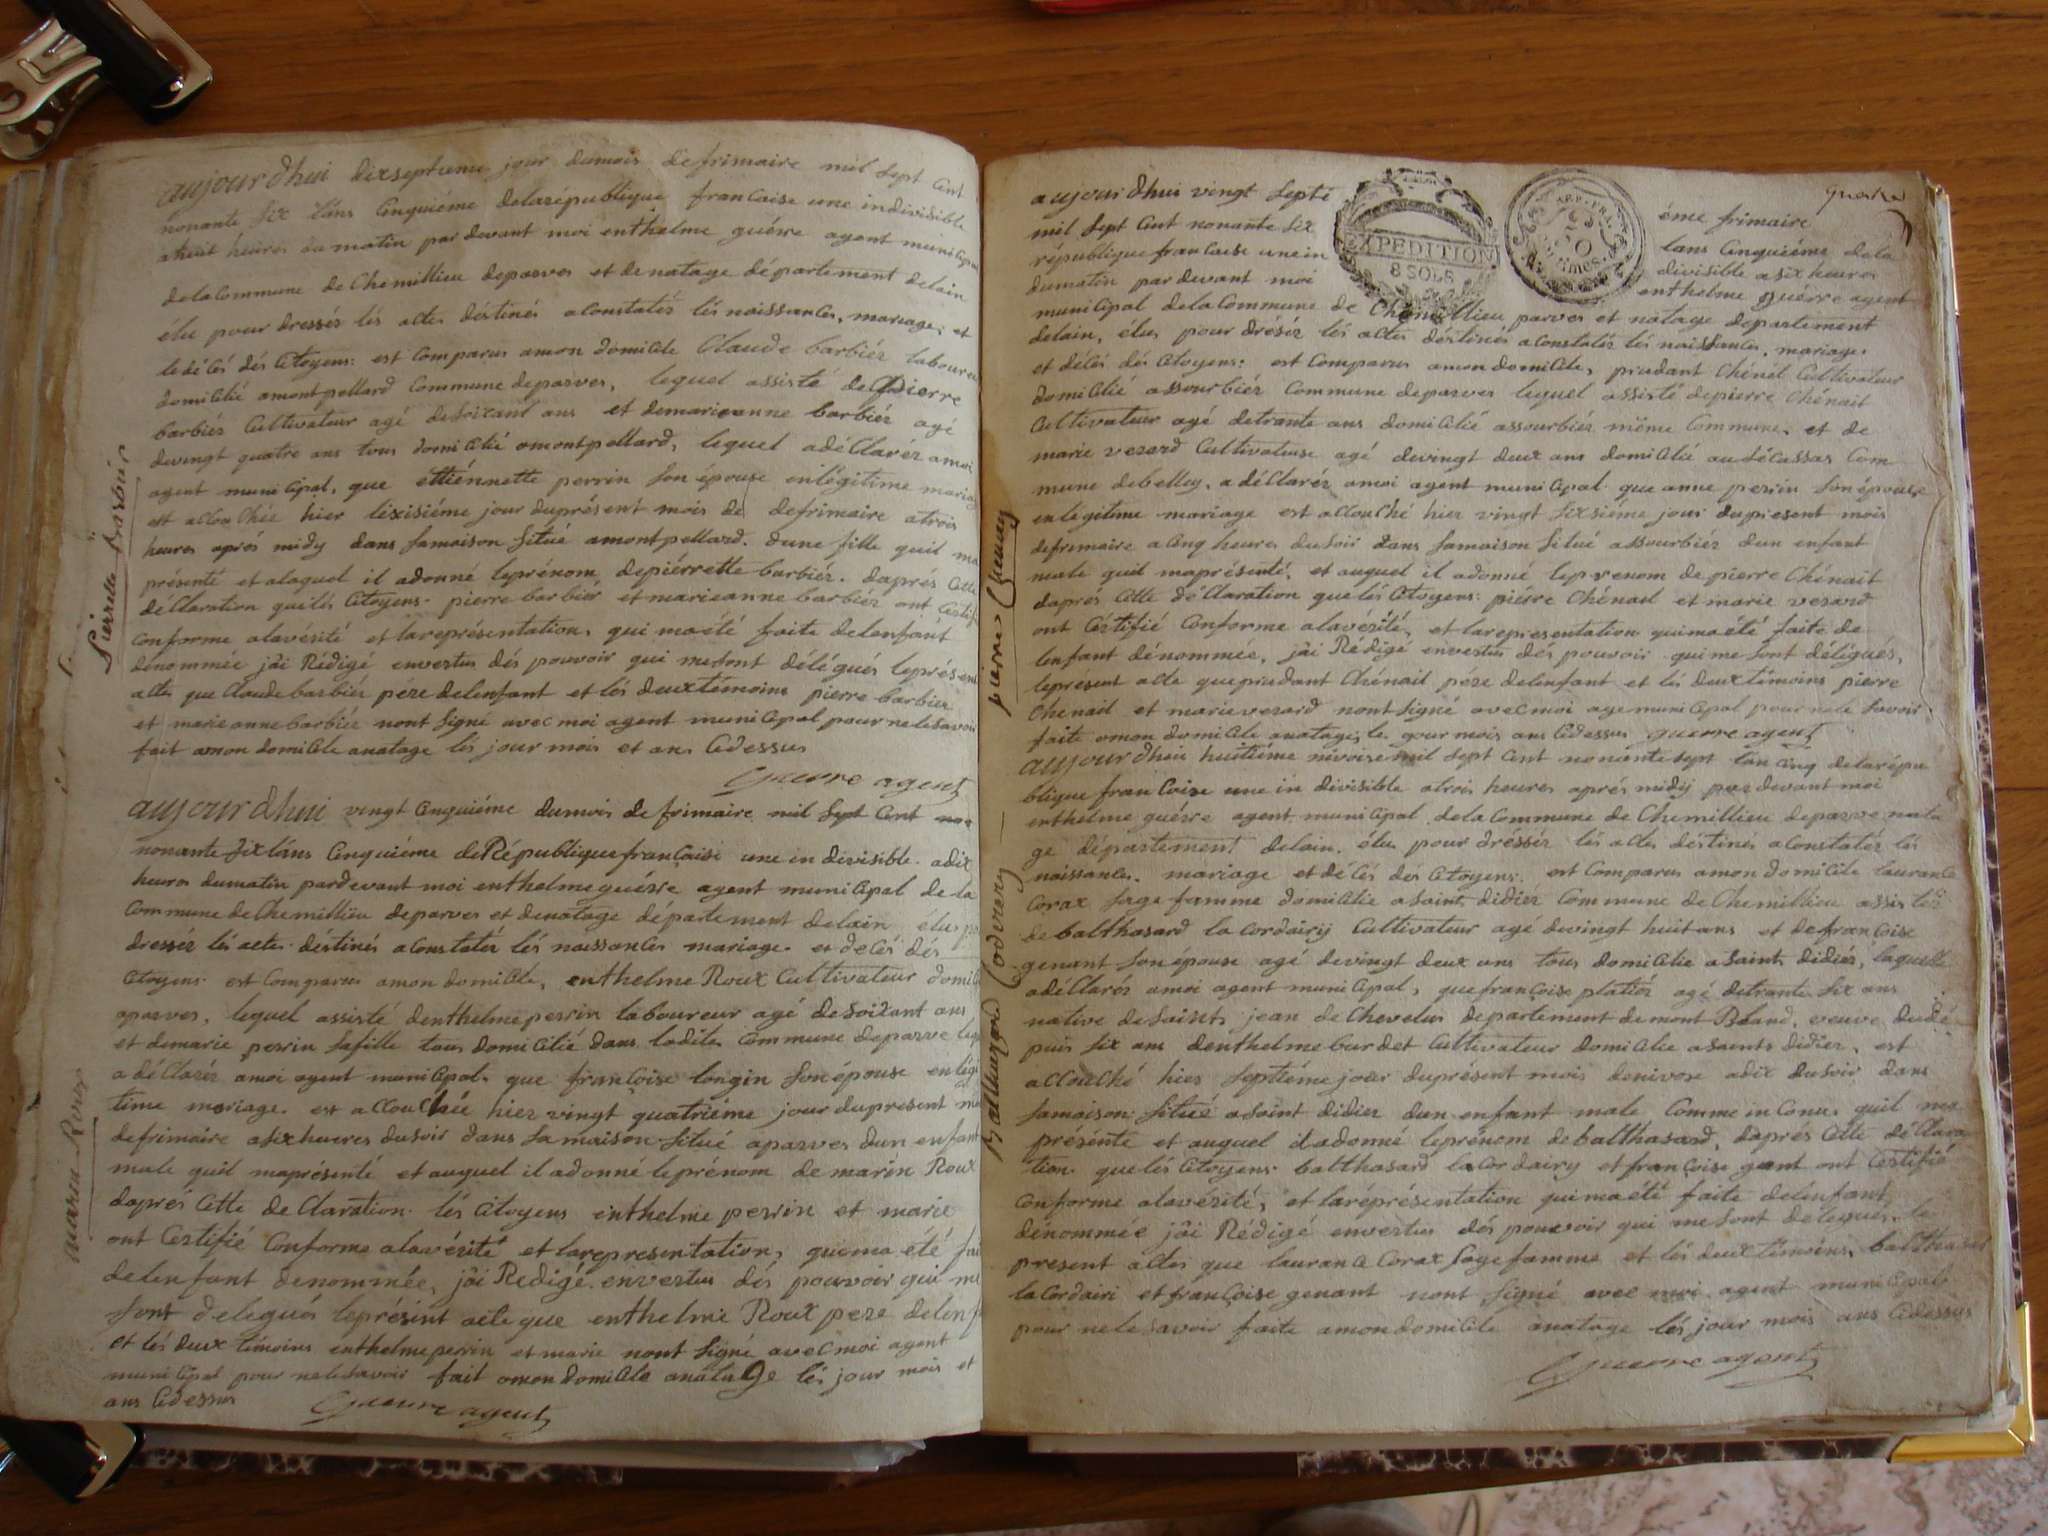 aujourdhui dixseptieme jour dumois defrimaire mil sept cent
nonante six lâns cinquiéme delarépublique francaise une indivisible
ahuit heures du matin par devant moi enthelme guérre agent municipal
delacommune de Chemillieu deparves et de natage département delain
élu pour dressér lés actes déstinés aconstatér lés naissances, mariage, et
ledécés dés Citoyens: est comparus amon domicile Claude barbiér laboureur
domicilié amontpellard commune deparves, lequel assisté de pierre
barbiér Cultivateur agé desoixant ans et demarieanne barbiér agé
devingt quatre ans tous domicilié amontpellard, lequel adéclarér amoi
agent municipal, que ettiénnette perrin son épouse enlégitime mariage
est accouchér hier lixisiéme jour duprésent mois de defrimaire atrois
heures aprés midy dans samaison situé amontpellard. dune fille quil ma
présenté et alaquel il adonné leprénom depiérrette barbiér. daprés cette
déclaration quelés Citoyens pierre barbiér et marieanne barbiér ont certifié
conforme alavérité et lareprésentation, qui maété faite delenfant
dénommée jâi Rédigé envertus dés pouvoir qui mesont délégués leprésent
actes que Claude barbiér pére delenfant et lés deux témoins pierre barbiér
et marieanne barbiér nont signé avec moi agent municipal pour nelesavoir
fait amon domicile anatage lés jour mois et ans Cidessus
Guerre agent
Pierrette Barbier
aujourdhui vingt cinquiéme dumois de frimaire mil sept cent non
nonante six lâns cinquiéme de République francaise une indivisible. adix
heures dumatin pardevant moi enthelme guérre agent municipal de la
Commune de Chemillieu deparves et denatage département delain élus
dressér lés actes déstinés aconstatér lés naissances mariage. et décés dés
Citoyens est comparus amon domicile, enthelme Roux Cultivateur domicilié
aparves, lequel assisté denthelme perrin laboureur agé desoixant ans
et demarie perrin safille tous domicilié dans ladite Commune deparve
adéclarér amoi agent municipal. que françoise longin son épouse enlégi
time mariage. est accouchée hier vingt quatriéme jour dupresent
defrimaire asixheures dusoir dans samaison situé aparves dun enfant
male quil maprésenté et auquel il adonné leprénom de marin Roux
daprés cette declaration. lés Citoyens enthelme perrin et marie
ont certifié Conforme alavérité et larepresentation, quima été
delenfant dénommée, jâi Redigé. envertus dés pouvoir qui me
sont delegués leprésent acte que enthelme Roux pere delenf
et lés deux témoins enthelme perrin et marie nont signé avec moi agent
municipal pour nelesavoir fait amon domicile anatage lés jour mois et
ans Cidessus Guerre agent
marin Roux
quatre
EXPEDITION
8 SOLS
aujourdhui vingt septi éme frimaire
mil sept cent nonante six lans cinquiéme de la
république francaise unein divisible asix heures
dumatin par devant moi enthelme guérre agent
municipal delacommune de Chemillieu parves et natage departement
delain, élus pour dréssér lés actes déstinés aconstatér lés naissances, mariage.
et décés dés Citoyens: est comparus amon domicile, prudant Chénet Cultivateur
domicilié assourbiér commune deparves lequel assisté depierre Chénait
Cultivateur agé detrante ans domicilié assourbiér même Commune. et de
marie verard Cultivateuse agé devingt deux ans domicilié au Com
mune debelley, adéclarér amoi agent municipal que anne perrin son épouse
enlégitime mariage est accouché hier vingt sixsiéme jour dupresent mois
defrimaire acinq heures dusoir dans samaison situé assourbiér dun enfant
male quil maprésenté, et auquel il adonné leprenom depierre Chénait
daprés cette déclaration quelés Citoyens: piérre Chénail et marie verard
ont Certifié Conforme alavérité, et larepresentation quimaété faite de
lenfant dénommée, jâi Rédigé envertus dés pouvoir qui me sont délégués,
lepresent acte queprudant Chénail pére delenfant et lés deux témoins pierre
Chenail et marieverard nont signé avecmoi agemunicipal pour nele savoir.
faite amon domicile anatage, le jour mois ans Cidessus guerre agent
pierre Chenay
aujourdhui huitiéme nivose mil sept cent nonante sept lan cinq delarépu
blique françoise une in divisible atrois heures aprés midij par devant moi
enthélme guérre agent municipal delacommune de Chemillieu deparve nata
ge département delain. élus pour dréssér lés actes déstinés aconstatér lés
naissances. mariage et décés dés Citoyens: est comparus amon domicile laurance
Corax sage famme domicilié asaint didiér commune de Chemillieu assistér
de balthasard lacordairij Cultivateur agé devingt huit ans et de françoise
genant son épouse agé devingt deux ans tous domicilie asaint didiér, laquelle
adéclarér amoi agent municipal, quefrançoise platiér agé detrante six ans
native desaint jean de Chevelus departement demont Bland, veuve dudé
puis six ans denthélme burdet Cultivateur domicilie asaint didier. est
accouché hier septiéme jour duprésent mois denivose adix dusoir dans
samaison situé asaint didier dun enfant male Comme inconu quil ma
présénte et auquel il adonné leprénom debalthasard, daprés cette déclara
tion que lés Citoyens balthasard lacordairy et françoise genant ont Certifié
Conforme alavérité, et laréprésentation quimaété faite delenfant
dénommée jâi Rédigé envertus dés pouvoir qui me sont delegués. le
present actes que laurance Corax sage famme et lés deux témoins, balthasard
lacordairi et françoise genant nont signé avec moi agent municipal
pour nelesavoir faite amon domicile anatage lés jour mois ans Cidessus
Guerre agent
Balthazard Cordeory